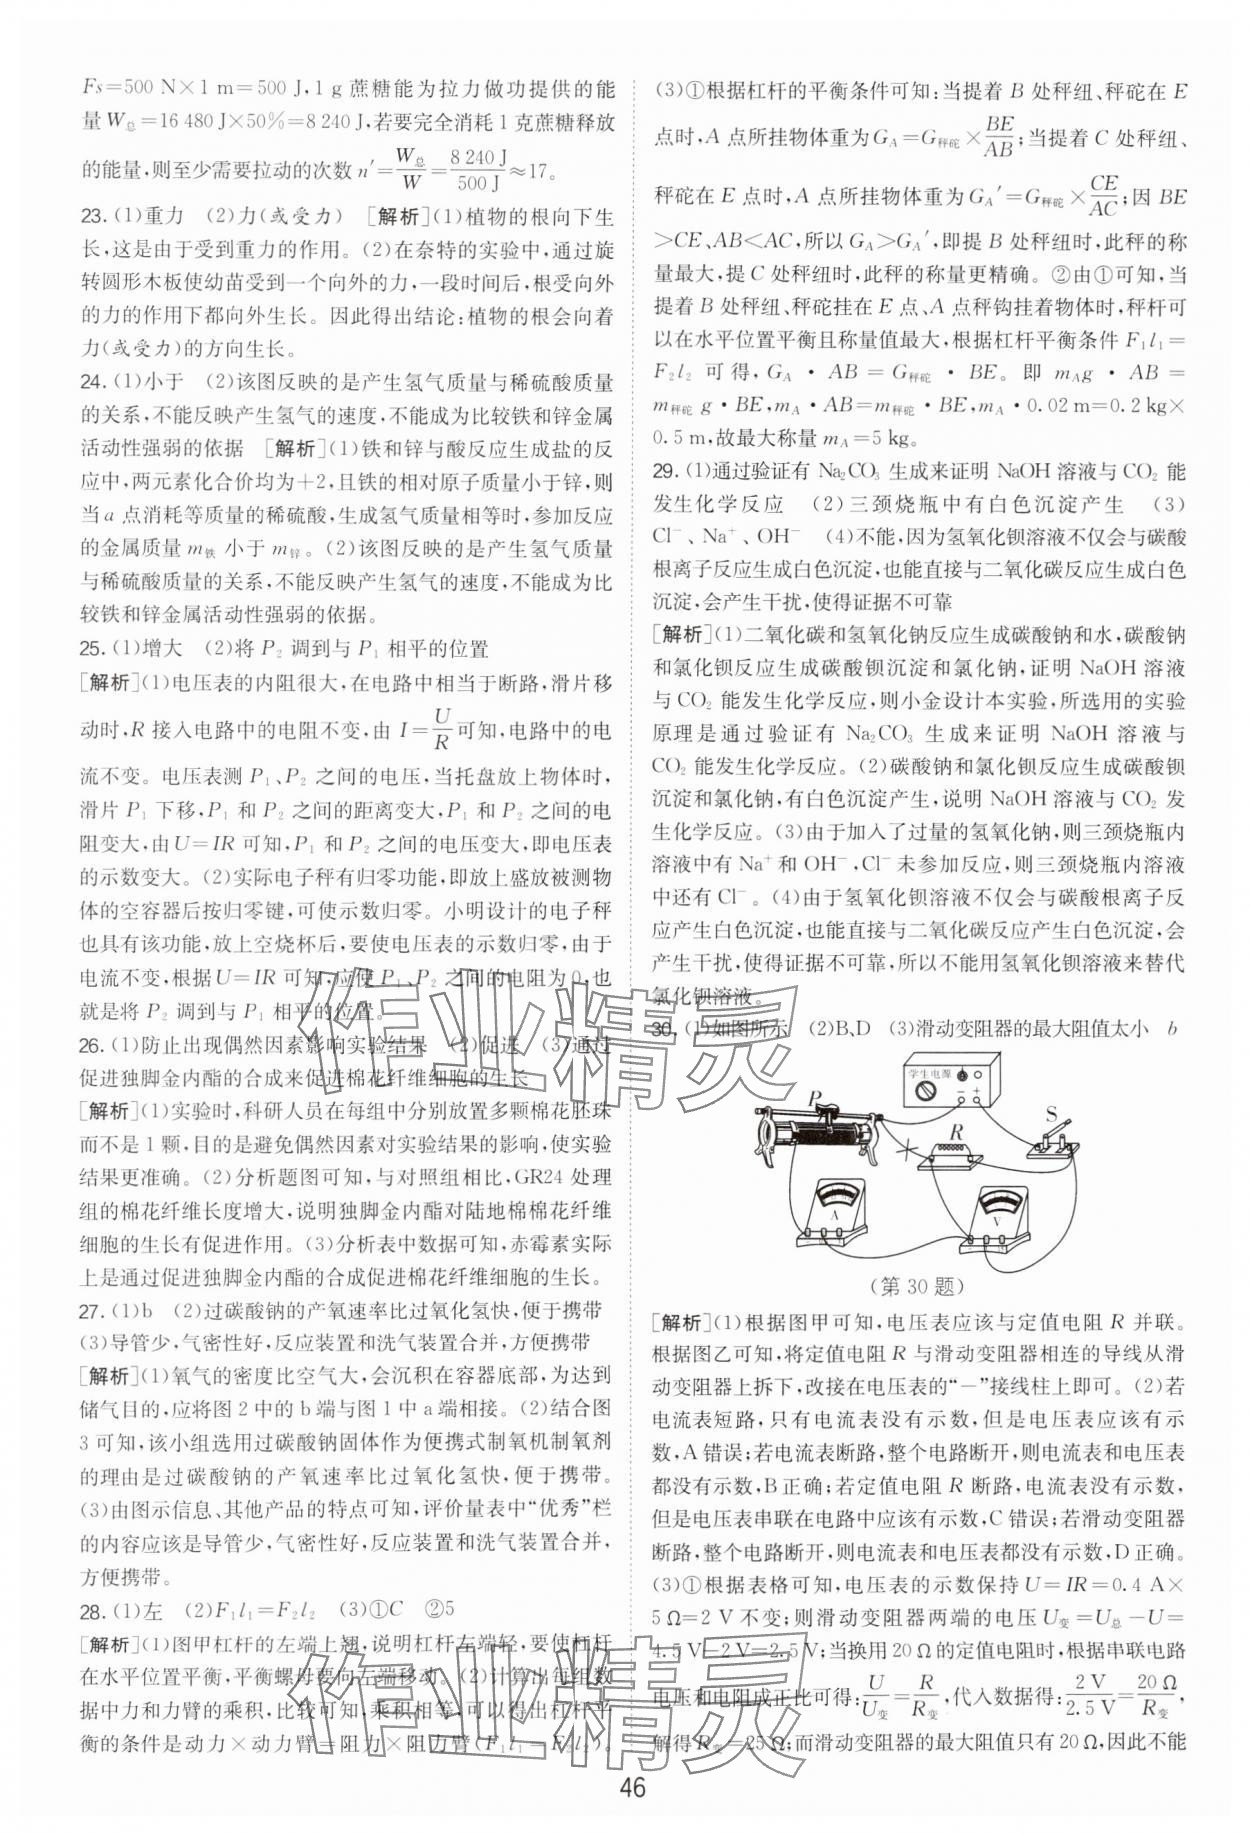 Fs=500 N×1 m=500 J,1 g蔗糖能为拉力做功提供的能
量W总=16 480 J×50%=8 240 J,若要完全消耗1克蔗糖释放
的能量,则至少需要拉动的次数n′=W总/W=8 240 J/500 J≈17。
23.(1)重力 (2)力(或受力) [解析](1)植物的根向下生
长,这是由于受到重力的作用。(2)在奈特的实验中,通过旋
转圆形木板使幼苗受到一个向外的力,一段时间后,根受向外
的力的作用下都向外生长。因此得出结论:植物的根会向着
力(或受力)的方向生长。
24.(1)小于 (2)该图反映的是产生氢气质量与稀硫酸质量
的关系,不能反映产生氢气的速度,不能成为比较铁和锌金属
活动性强弱的依据 [解析](1)铁和锌与酸反应生成盐的反
应中,两元素化合价均为+2,且铁的相对原子质量小于锌,则
当a点消耗等质量的稀硫酸,生成氢气质量相等时,参加反应
的金属质量m铁小于m锌。(2)该图反映的是产生氢气质量
与稀硫酸质量的关系,不能反映产生氢气的速度,不能成为比
较铁和锌金属活动性强弱的依据。
25.(1)增大 (2)将P₂调到与P₁相平的位置
[解析](1)电压表的内阻很大,在电路中相当于断路,滑片移
动时,R接入电路中的电阻不变,由I=U/R可知,电路中的电
流不变。电压表测P₁、P₂之间的电压,当托盘放上物体时,
滑片P₁下移,P₁和P₂之间的距离变大,P₁和P₂之间的电
阻变大,由U=IR可知,P₁和P₂之间的电压变大,即电压表
的示数变大。(2)实际电子秤有归零功能,即放上盛放被测物
体的空容器后按归零键,可使示数归零。小明设计的电子秤
也具有该功能,放上空烧杯后,要使电压表的示数归零,由于
电流不变,根据U=IR可知,应使P₁、P₂之间的电阻为0,也
就是将P₂调到与P₁相平的位置。
26.(1)防止出现偶然因素影响实验结果 (2)促进 (3)通过
促进独脚金内酯的合成来促进棉花纤维细胞的生长
[解析](1)实验时,科研人员在每组中分别放置多颗棉花胚珠
而不是1颗,目的是避免偶然因素对实验结果的影响,使实验
结果更准确。(2)分析题图可知,与对照组相比,GR24处理
组的棉花纤维长度增大,说明独脚金内酯对陆地棉棉花纤维
细胞的生长有促进作用。(3)分析表中数据可知,赤霉素实际
上是通过促进独脚金内酯的合成促进棉花纤维细胞的生长。
27.(1)b (2)过碳酸钠的产氧速率比过氧化氢快,便于携带
(3)导管少,气密性好,反应装置和洗气装置合并,方便携带
[解析](1)氧气的密度比空气大,会沉积在容器底部,为达到
储气目的,应将图2中的b端与图1中a端相接。(2)结合图
3可知,该小组选用过碳酸钠固体作为便携式制氧机制氧剂
的理由是过碳酸钠的产氧速率比过氧化氢快,便于携带。
(3)由图示信息、其他产品的特点可知,评价量表中“优秀”栏
的内容应该是导管少,气密性好,反应装置和洗气装置合并,
方便携带。
28.(1)左 (2)F₁l₁=F₂l₂ (3)①C ②5
[解析](1)图甲杠杆的左端上翘,说明杠杆左端轻,要使杠杆
在水平位置平衡,平衡螺母要向左端移动。(2)计算出每组数
据中力和力臂的乘积,比较可知,乘积相等,可以得出杠杆平
衡的条件是动力×动力臂=阻力×阻力臂(F₁l₁=F₂l₂)。
(3)①根据杠杆的平衡条件可知:当提着B处秤纽、秤砣在E
点时,A点所挂物体重为G_A=G秤砣×BE/AB;当提着C处秤纽、
秤砣在E点时,A点所挂物体重为G_A′=G秤砣×CE/AC;因BE
>CE、AB<AC,所以G_A>G_A′,即提B处秤纽时,此秤的称
量最大,提C处秤纽时,此秤的称量更精确。②由①可知,当
提着B处秤纽、秤砣挂在E点、A点秤钩挂着物体时,秤杆可
以在水平位置平衡且称量值最大,根据杠杆平衡条件F₁l₁=
F₂l₂可得,G_A·AB=G秤砣·BE。即m_Ag·AB=
m秤砣g·BE,m_A·AB=m秤砣·BE,m_A·0.02 m=0.2 kg×
0.5 m,故最大称量m_A=5 kg。
29.(1)通过验证有Na₂CO₃生成来证明NaOH溶液与CO₂能
发生化学反应 (2)三颈烧瓶中有白色沉淀产生 (3)
Cl⁻、Na⁺、OH⁻ (4)不能,因为氢氧化钡溶液不仅会与碳酸
根离子反应生成白色沉淀,也能直接与二氧化碳反应生成白色
沉淀,会产生干扰,使得证据不可靠
[解析](1)二氧化碳和氢氧化钠反应生成碳酸钠和水,碳酸钠
和氯化钡反应生成碳酸钡沉淀和氯化钠,证明NaOH溶液
与CO₂能发生化学反应,则小金设计本实验,所选用的实验
原理是通过验证有Na₂CO₃生成来证明NaOH溶液与
CO₂能发生化学反应。(2)碳酸钠和氯化钡反应生成碳酸钡
沉淀和氯化钠,有白色沉淀产生,说明NaOH溶液与CO₂发
生化学反应。(3)由于加入了过量的氢氧化钠,则三颈烧瓶内
溶液中有Na⁺和OH⁻,Cl⁻未参加反应,则三颈烧瓶内溶液
中还有Cl⁻。(4)由于氢氧化钡溶液不仅会与碳酸根离子反
应产生白色沉淀,也能直接与二氧化碳反应产生白色沉淀,会
产生干扰,使得证据不可靠,所以不能用氢氧化钡溶液来替代
氯化钡溶液。
30.(1)如图所示 (2)B、D (3)滑动变阻器的最大阻值太小 b
学生电源
P
R
S
A
V
(第30题)
[解析](1)根据图甲可知,电压表应该与定值电阻R并联。
根据图乙可知,将定值电阻R与滑动变阻器相连的导线从滑
动变阻器上拆下,改接在电压表的“－”接线柱上即可。(2)若
电流表短路,只有电流表没有示数,但是电压表应该有示
数,A错误;若电流表断路,整个电路断开,则电流表和电压表
都没有示数,B正确;若定值电阻R断路,电流表没有示数,
但是电压表串联在电路中应该有示数,C错误;若滑动变阻器
断路,整个电路断开,则电流表和电压表都没有示数,D正确。
(3)①根据表格可知,电压表的示数保持U=IR=0.4 A×
5 Ω=2 V不变;则滑动变阻器两端的电压U变=U总-U=
4.5 V-2 V=2.5 V;当换用20 Ω的定值电阻时,根据串联电路
电压和电阻成正比可得:U/U变=R/R变,代入数据得:2 V/2.5 V=20 Ω/R变,
解得R变=25 Ω;而滑动变阻器的最大阻值只有20 Ω,因此不能
作业精灵
作业精灵
46